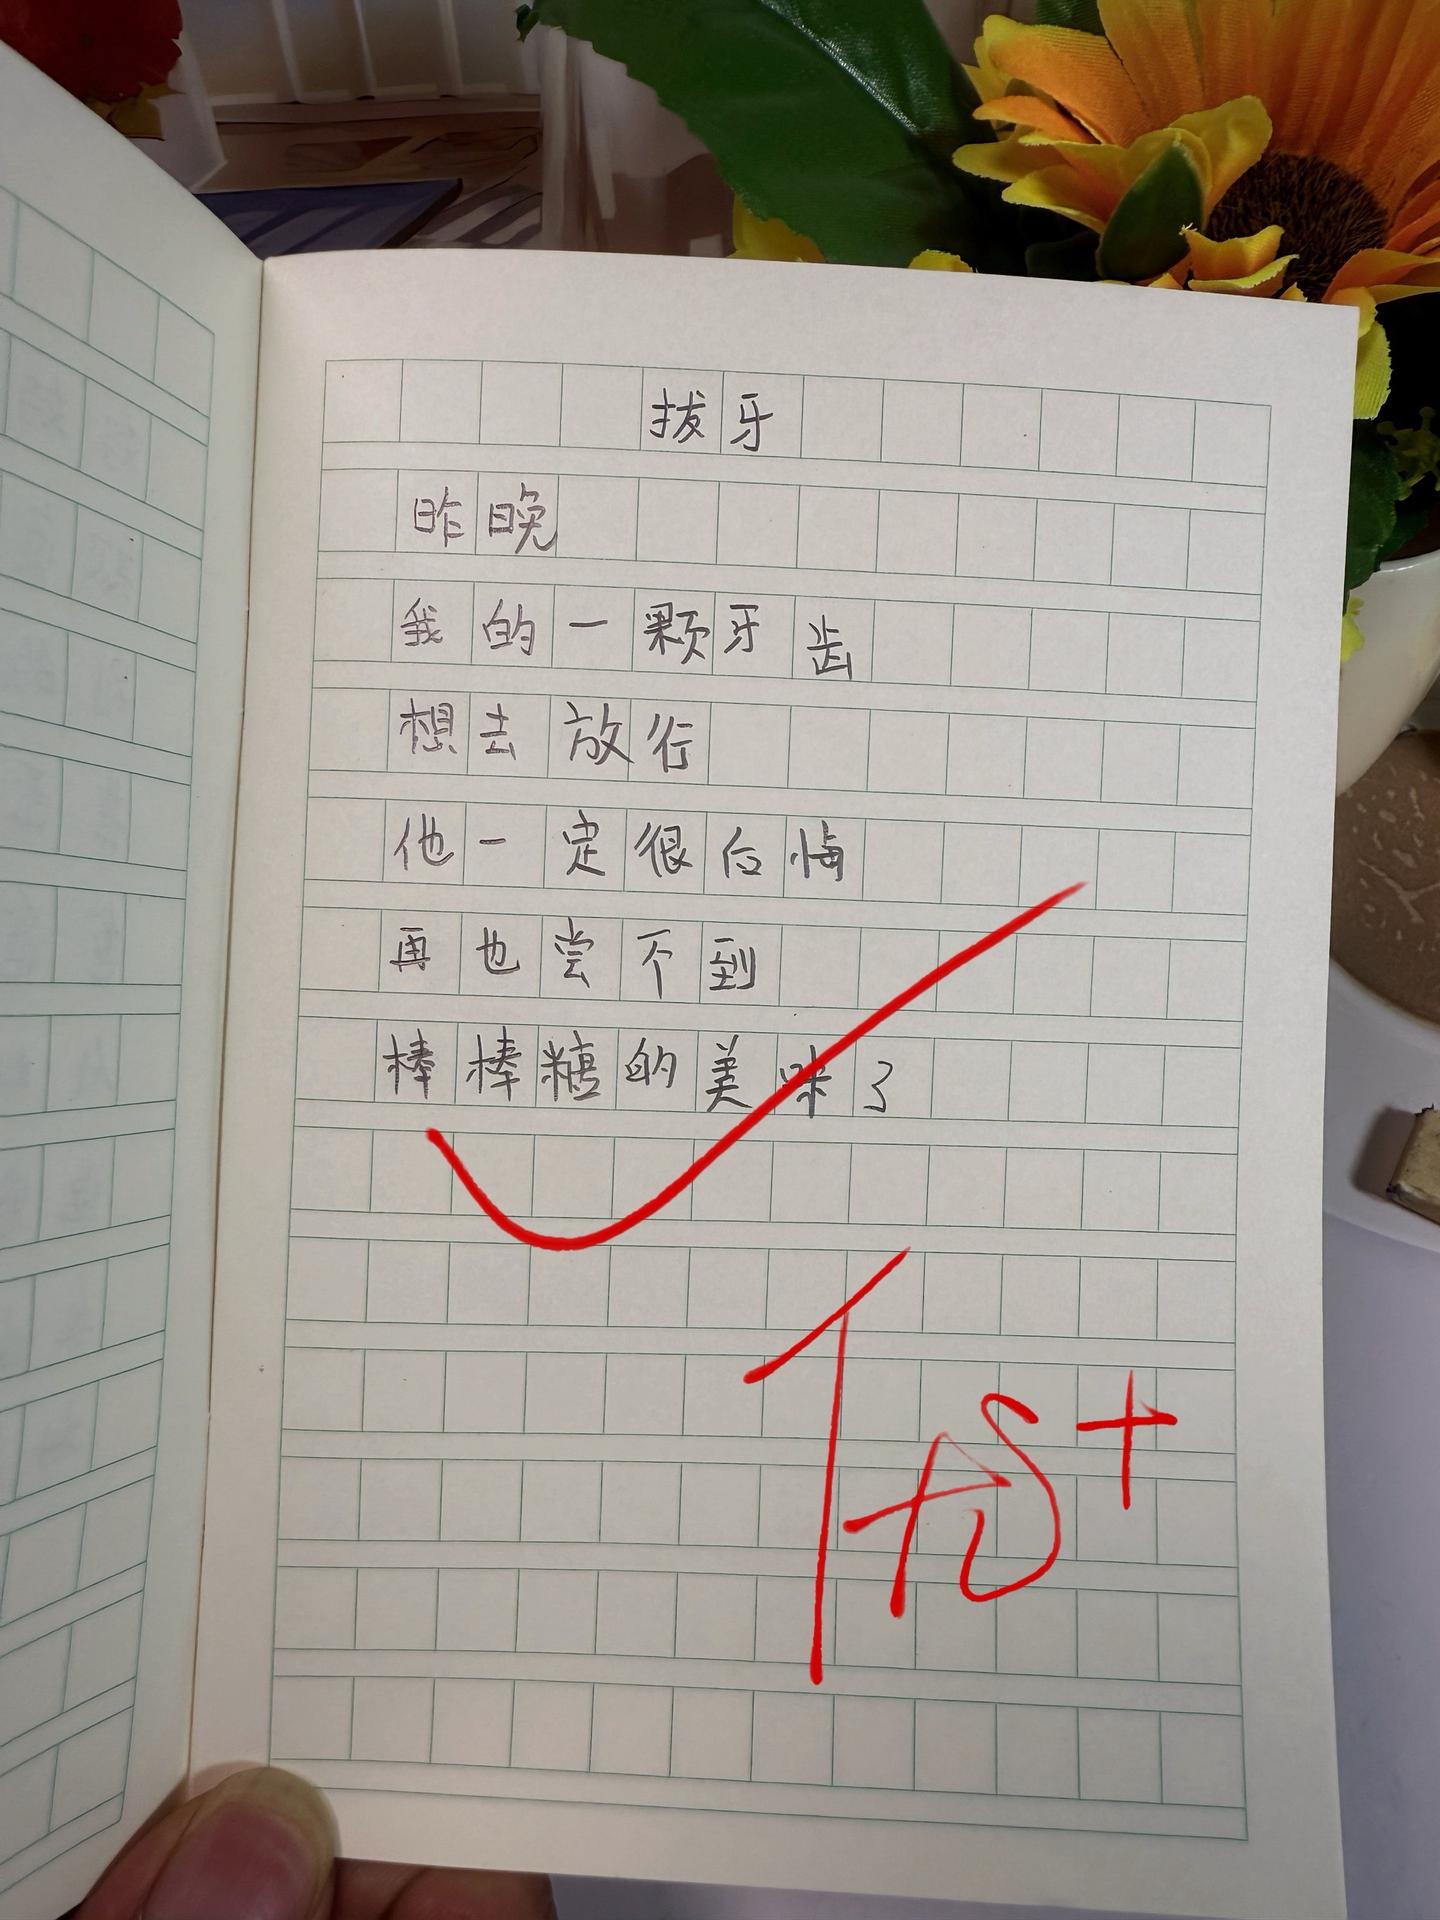 拔牙
昨晚
我的一颗牙齿
想去放行
他一定很后悔
再也尝不到
棒棒糖的美味了
优+